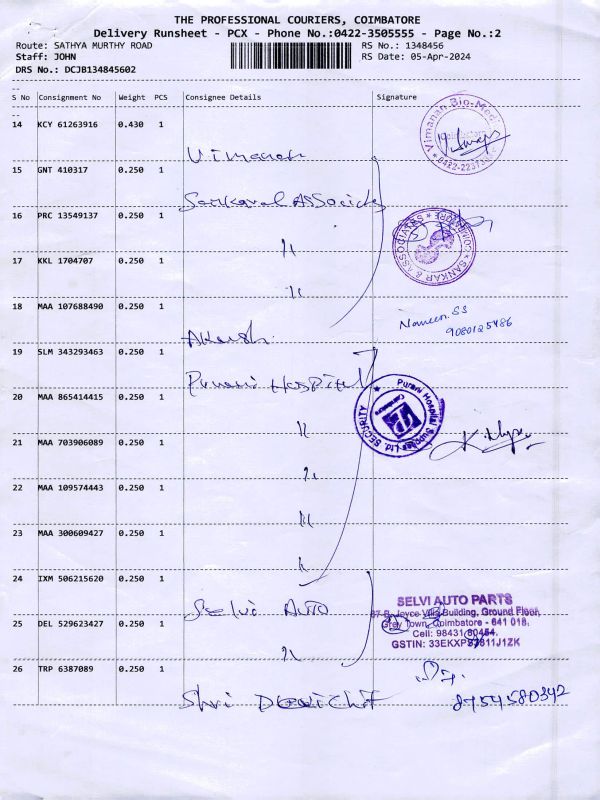 THE PROFESSIONAL COURIERS, COIMBATORE
Delivery Runsheet - PCX - Phone No.:0422-3505555 - Page No.:2
Route: SATHYA MURTHY ROAD RS No.: 1348456
Staff: JOHN RS Date: 05-Apr-2024
DRS No.: DCJB134845602
S No Consignment No Weight PCS Consignee Details Signature
14 KCY 61263916 0.430 1
Vimanan
Vimanan Bio-Med
15 GNT 410317 0.250 1
Sankaral Associates
16 PRC 13549137 0.250 1
"
SANKAR & ASSOCIATES * COIMBATORE *
17 KKL 1704707 0.250 1
"
18 MAA 107688490 0.250 1
Akash
Naveen.SS
9080125486
19 SLM 343293463 0.250 1
Purani Hospital
20 MAA 865414415 0.250 1
"
Purani Hospital Supplies Ltd. SECURITY
Coimbatore
21 MAA 703906089 0.250 1
"
22 MAA 109574443 0.250 1
"
23 MAA 300609427 0.250 1
"
24 IXM 506215620 0.250 1
Selvi Auto
SELVI AUTO PARTS
Building, Ground Floor,
Grey Town, Coimbatore - 641 018.
Cell: 98431 80454.
25 DEL 529623427 0.250 1
"
26 TRP 6387089 0.250 1
Shri
8754580342